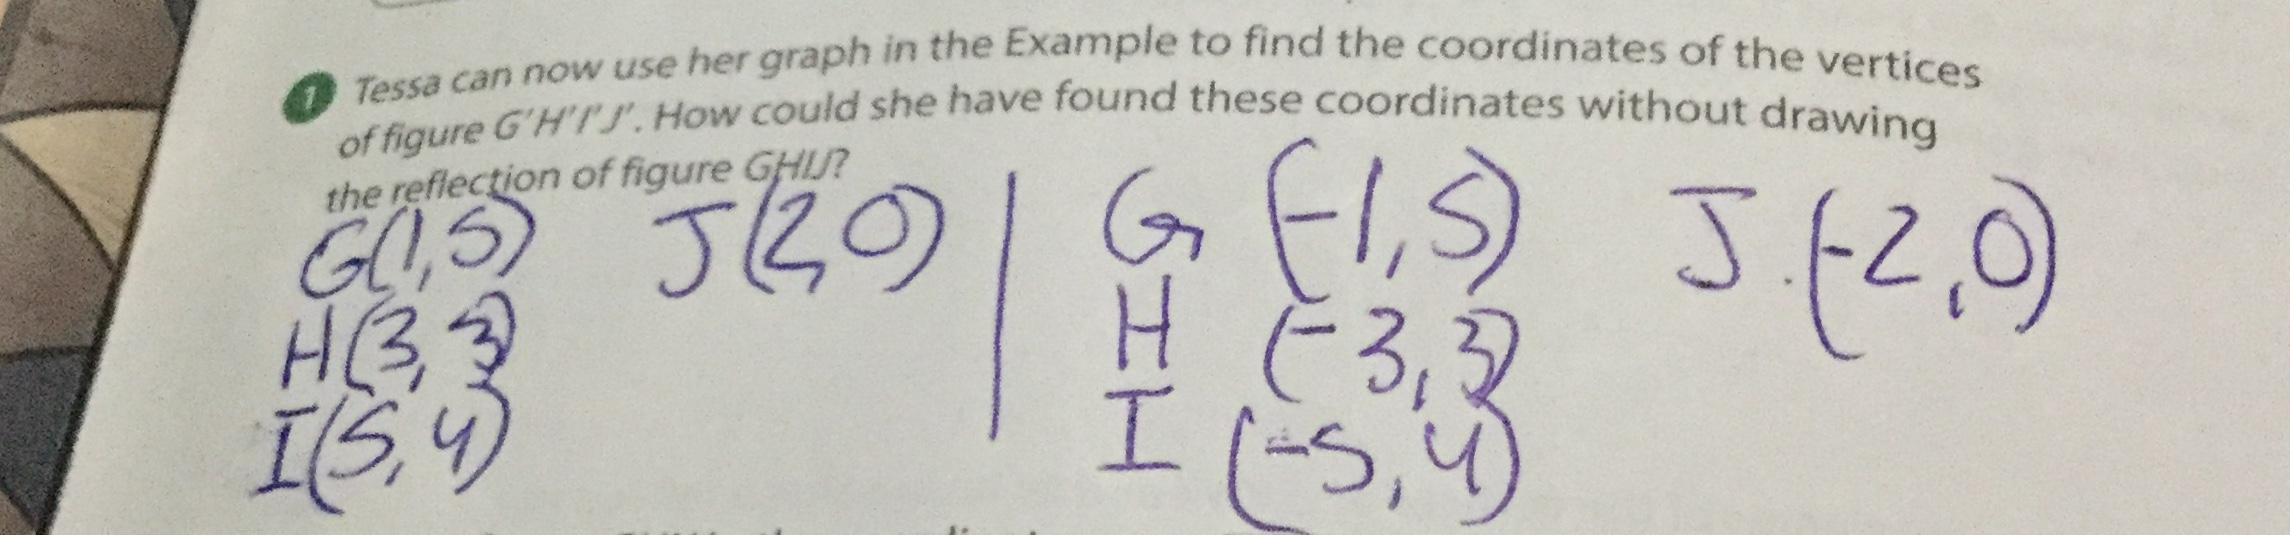 1 Tessa can now use her graph in the Example to find the coordinates of the vertices
of figure G'H'I'J'. How could she have found these coordinates without drawing
the reflection of figure GHIJ?
G(1,5) J(2,0) | G (-1,5) J.(-2,0)
H(3,3) H (-3,3)
I(5,4) I (-5,4)